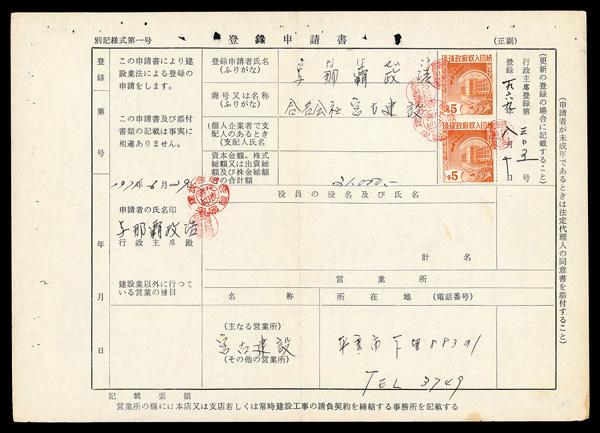 別記様式第一号
登録申請書
(正副)
登録
第
号
年
月
日
この申請書により建
設業法による登録の
申請をします。
この申請書及び添付
書類の記載は事実に
相違ありません。
1971年6月29
申請者の氏名印
与那覇政浩
行政主席殿
建設業以外に行つて
いる営業の種目
登録申請者氏名
(ふりがな)
与那覇政浩
商号又は名称
(ふりがな)
合名会社宮古建設
(個人企業者で支
配人のあるとき
(支配人氏名
資本金額、株式
総額又は出資総
額及び株金総額
の合計額
琉球政府収入印紙
$5
琉球政府収入印紙
$5
役員の役名及び氏名
計 名
営業所
名称
所在地 (電話番号)
(主なる営業所)
宮古建設
(その他の営業所)
平良市下里
TEL 3749
行政主席登録第 号
登録 一九六九年八月 日
(更新の登録の場合に記載すること)
(申請者が未成年であるときは法定代理人の同意書を添付すること)
記載要領
営業所の欄には本店又は支店若しくは常時建設工事の請負契約を締結する事務所を記載する